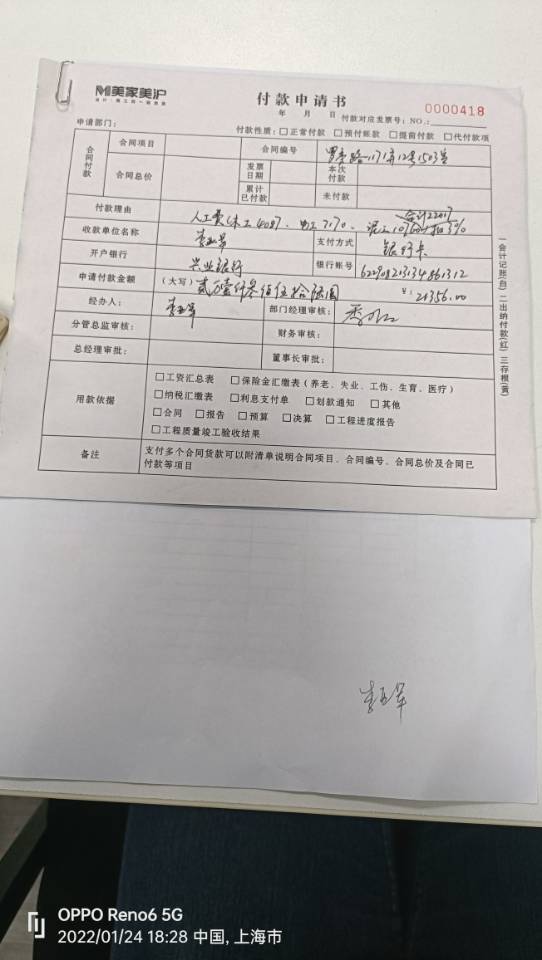 美家美沪
设计·施工的一站家装
付款申请书
0000418
年 月 日 付款对应发票号：NO.：
申请部门：
付款性质：□正常付款 □预付帐款 □提前付款 □代付款项
合同付款
合同项目
合同编号
路1171弄12号1503室
合同总价
发票日期
本次付款
累计已付款
未付款
合计22017
付款理由
人工费（木工4087、电工7170、泥工10760 扣3%
收款单位名称
支付方式
银行卡
开户银行
兴业银行
银行帐号
622908213134861312
申请付款金额
（大写）
贰万壹仟叁佰伍拾陆圆
￥：21356.00
经办人：
部门经理审核：
分管总监审核：
财务审核：
总经理审批：
董事长审批：
用款依据
□工资汇总表 □保险金汇缴表（养老、失业、工伤、生育、医疗）
□纳税汇缴表 □利息支付单 □划款通知 □其他
□合同 □报告 □预算 □决算 □工程进度报告
□工程质量竣工验收结果
备注
支付多个合同货款可以附清单说明合同项目、合同编号、合同总价及合同已
付款等项目
一会计记账(白) 二出纳付款(红) 三存根(黄)
OPPO Reno6 5G
2022/01/24 18:28 中国, 上海市